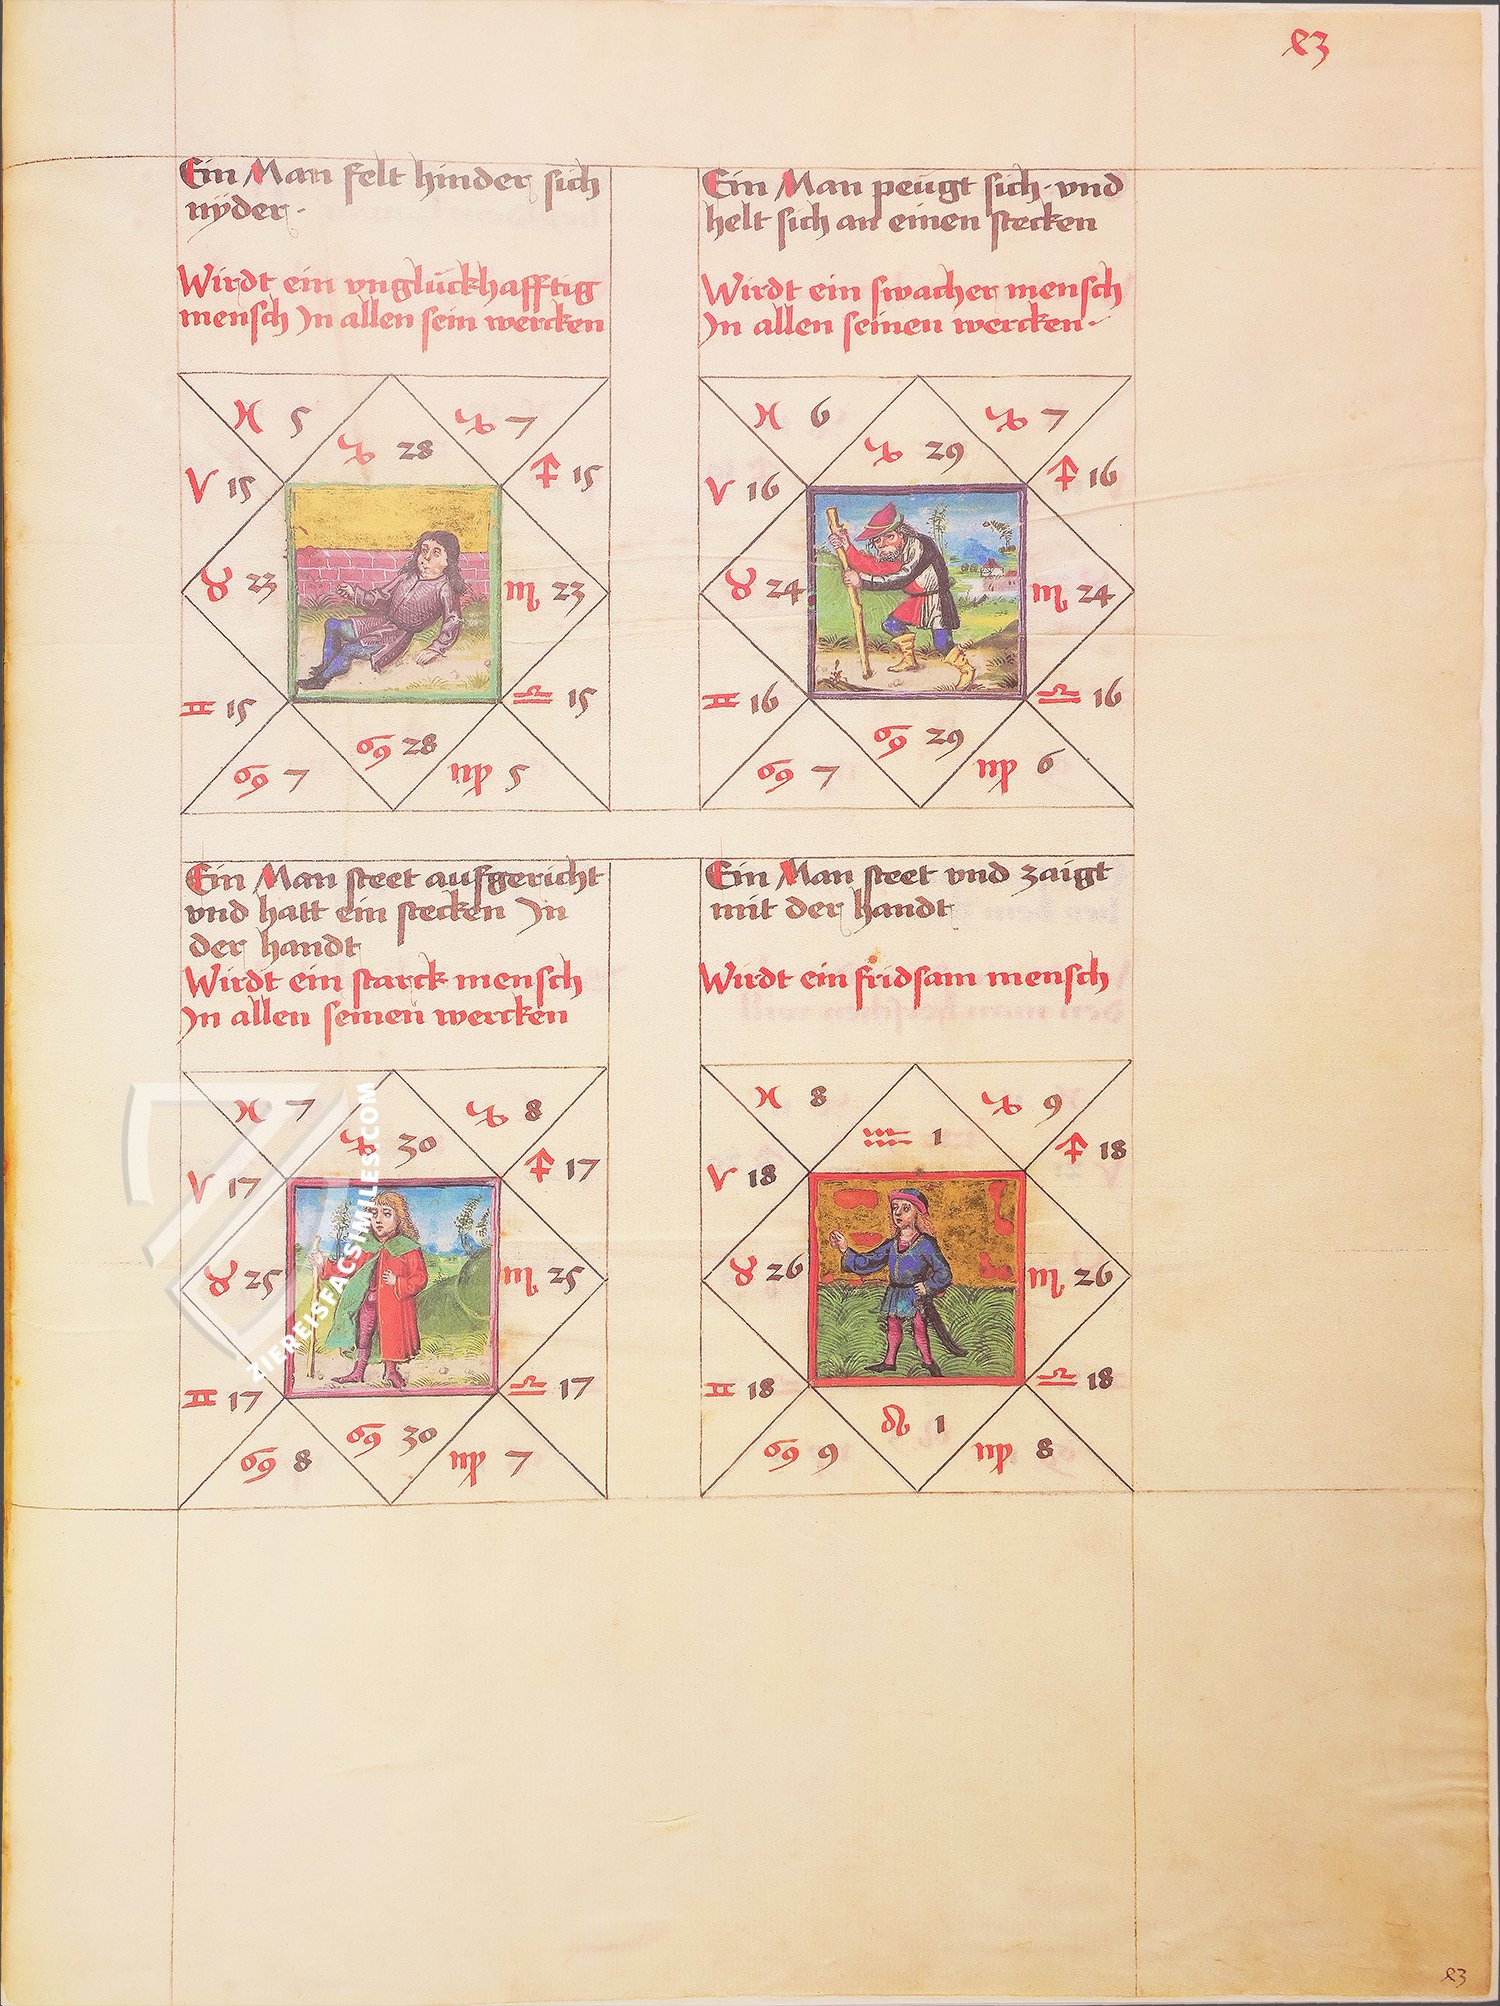 83
Ein Man felt hinder sich
nyder.
Wirdt ein vnglückhafftig
mensch In allen sein wercken
♓ 5
♑ 28
♑ 7
♈ 15
♐ 15
♉ 23
♏ 23
♊ 15
♎ 15
♋ 7
♋ 28
♍ 5
Ein Man peugt sich vnd
helt sich an einen stecken
Wirdt ein swacher mensch
In allen seinen wercken.
♓ 6
♑ 29
♑ 7
♈ 16
♐ 16
♉ 24
♏ 24
♊ 16
♎ 16
♋ 7
♋ 29
♍ 6
Ein Man steet aufgericht
vnd hatt ein stecken In
der handt
Wirdt ein starck mensch
In allen seinen wercken
♓ 7
♑ 30
♑ 8
♈ 17
♐ 17
♉ 25
♏ 25
♊ 17
♎ 17
♋ 8
♋ 30
♍ 7
Ein Man steet vnd zaigt
mit der handt
Wirdt ein fridsam mensch
♓ 8
♒ 1
♑ 9
♈ 18
♐ 18
♉ 26
♏ 26
♊ 18
♎ 18
♋ 9
♌ 1
♍ 8
ZIEREISFACSIMILES.COM
83